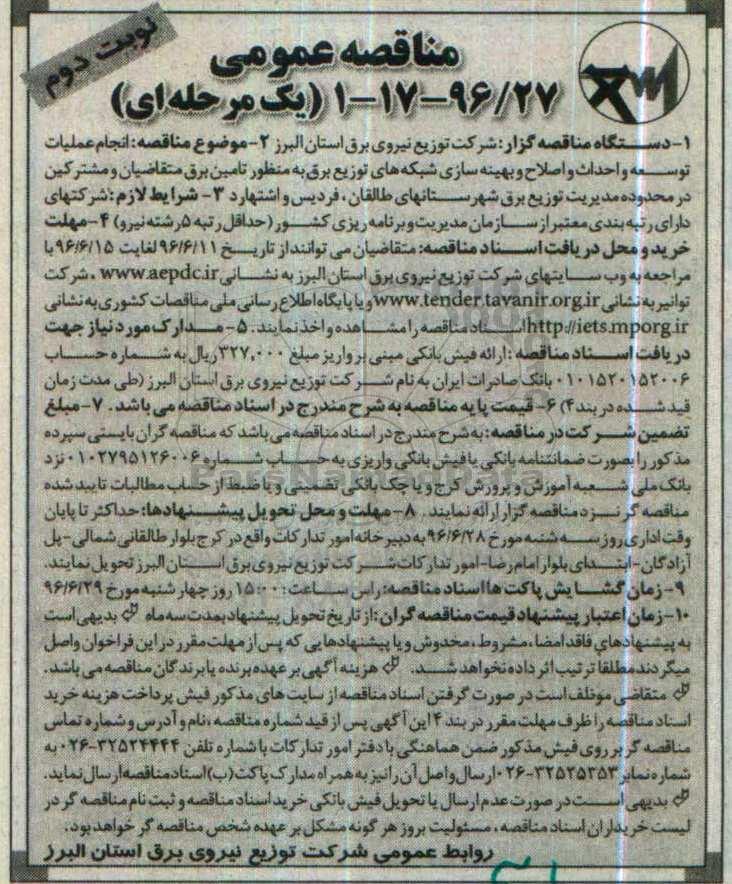 نوبت دوم
مناقصه عمومی
۱-۱۷-۹۶/۲۷ (یک مرحله ای)
۱-دستگاه مناقصه گزار: شرکت توزیع نیروی برق استان البرز ۲-موضوع مناقصه: انجام عملیات
توسعه و احداث و اصلاح و بهینه سازی شبکه های توزیع برق به منظور تامین برق متقاضیان و مشترکین
در محدوده مدیریت توزیع برق شهرستانهای طالقان، فردیس و اشتهارد ۳- شرایط لازم: شرکتهای
دارای رتبه بندی معتبر از سازمان مدیریت و برنامه ریزی کشور (حداقل رتبه ۵ رشته نیرو) ۴-مهلت
خرید و محل دریافت اسناد مناقصه: متقاضیان می توانند از تاریخ ۹۶/۶/۱۱ لغایت ۹۶/۶/۱۵ با
مراجعه به وب سایتهای شرکت توزیع نیروی برق استان البرز به نشانی www.aepdc.ir ، شرکت
توانیر به نشانی www.tender.tavanir.org.ir و یا پایگاه اطلاع رسانی ملی مناقصات کشوری به نشانی
http://iets.mporg.ir اسناد مناقصه را مشاهده و اخذ نمایند. ۵- مدارک مورد نیاز جهت
دریافت اسناد مناقصه: ارائه فیش بانکی مبنی بر واریز مبلغ ۳۲۷,۰۰۰ ریال به شماره حساب
۰۱۰۱۵۲۰۱۵۲۰۰۶ بانک صادرات ایران به نام شرکت توزیع نیروی برق استان البرز (طی مدت زمان
قید شده در بند ۴) ۶- قیمت پایه مناقصه به شرح مندرج در اسناد مناقصه می باشد. ۷-مبلغ
تضمین شرکت در مناقصه: به شرح مندرج در اسناد مناقصه می باشد که مناقصه گران بایستی سپرده
مذکور را بصورت ضمانتنامه بانکی یا فیش بانکی واریزی به حساب شماره ۰۱۰۲۷۹۵۱۲۶۰۰۶ نزد
بانک ملی شعبه آموزش و پرورش کرج و یا چک بانکی تضمینی و یا ضبط از حساب مطالبات تایید شده
مناقصه گر نزد مناقصه گزار ارائه نمایند. ۸-مهلت و محل تحویل پیشنهادها: حداکثر تا پایان
وقت اداری روز سه شنبه مورخ ۹۶/۶/۲۸ به دبیرخانه امور تدارکات واقع در کرج بلوار طالقانی شمالی-پل
آزادگان-ابتدای بلوار امام رضا-امور تدارکات شرکت توزیع نیروی برق استان البرز تحویل نمایند.
۹-زمان گشایش پاکت ها اسناد مناقصه: راس ساعت: ۱۵:۰۰ روز چهار شنبه مورخ ۹۶/۶/۲۹
۱۰-زمان اعتبار پیشنهاد قیمت مناقصه گران: از تاریخ تحویل پیشنهاد بمدت سه ماه بدیهی است
به پیشنهادهای فاقد امضا، مشروط، مخدوش و یا پیشنهادهایی که پس از مهلت مقرر در این فراخوان واصل
میگردند مطلقا ترتیب اثر داده نخواهد شد. هزینه آگهی بر عهده برنده یا برندگان مناقصه می باشد.
متقاضی موظف است در صورت گرفتن اسناد مناقصه از سایت های مذکور فیش پرداخت هزینه خرید
اسناد مناقصه را ظرف مهلت مقرر در بند ۴ این آگهی پس از قید شماره مناقصه، نام و آدرس و شماره تماس
مناقصه گر بر روی فیش مذکور ضمن هماهنگی با دفتر امور تدارکات با شماره تلفن ۳۲۵۲۴۴۴۴-۰۲۶ به
شماره نمابر ۳۲۵۲۵۳۵۳-۰۲۶ ارسال و اصل آن را نیز به همراه مدارک پاکت (ب) اسناد مناقصه ارسال نماید.
بدیهی است در صورت عدم ارسال یا تحویل فیش بانکی خرید اسناد مناقصه و ثبت نام مناقصه گر در
لیست خریداران اسناد مناقصه، مسئولیت بروز هر گونه مشکل بر عهده شخص مناقصه گر خواهد بود.
روابط عمومی شرکت توزیع نیروی برق استان البرز